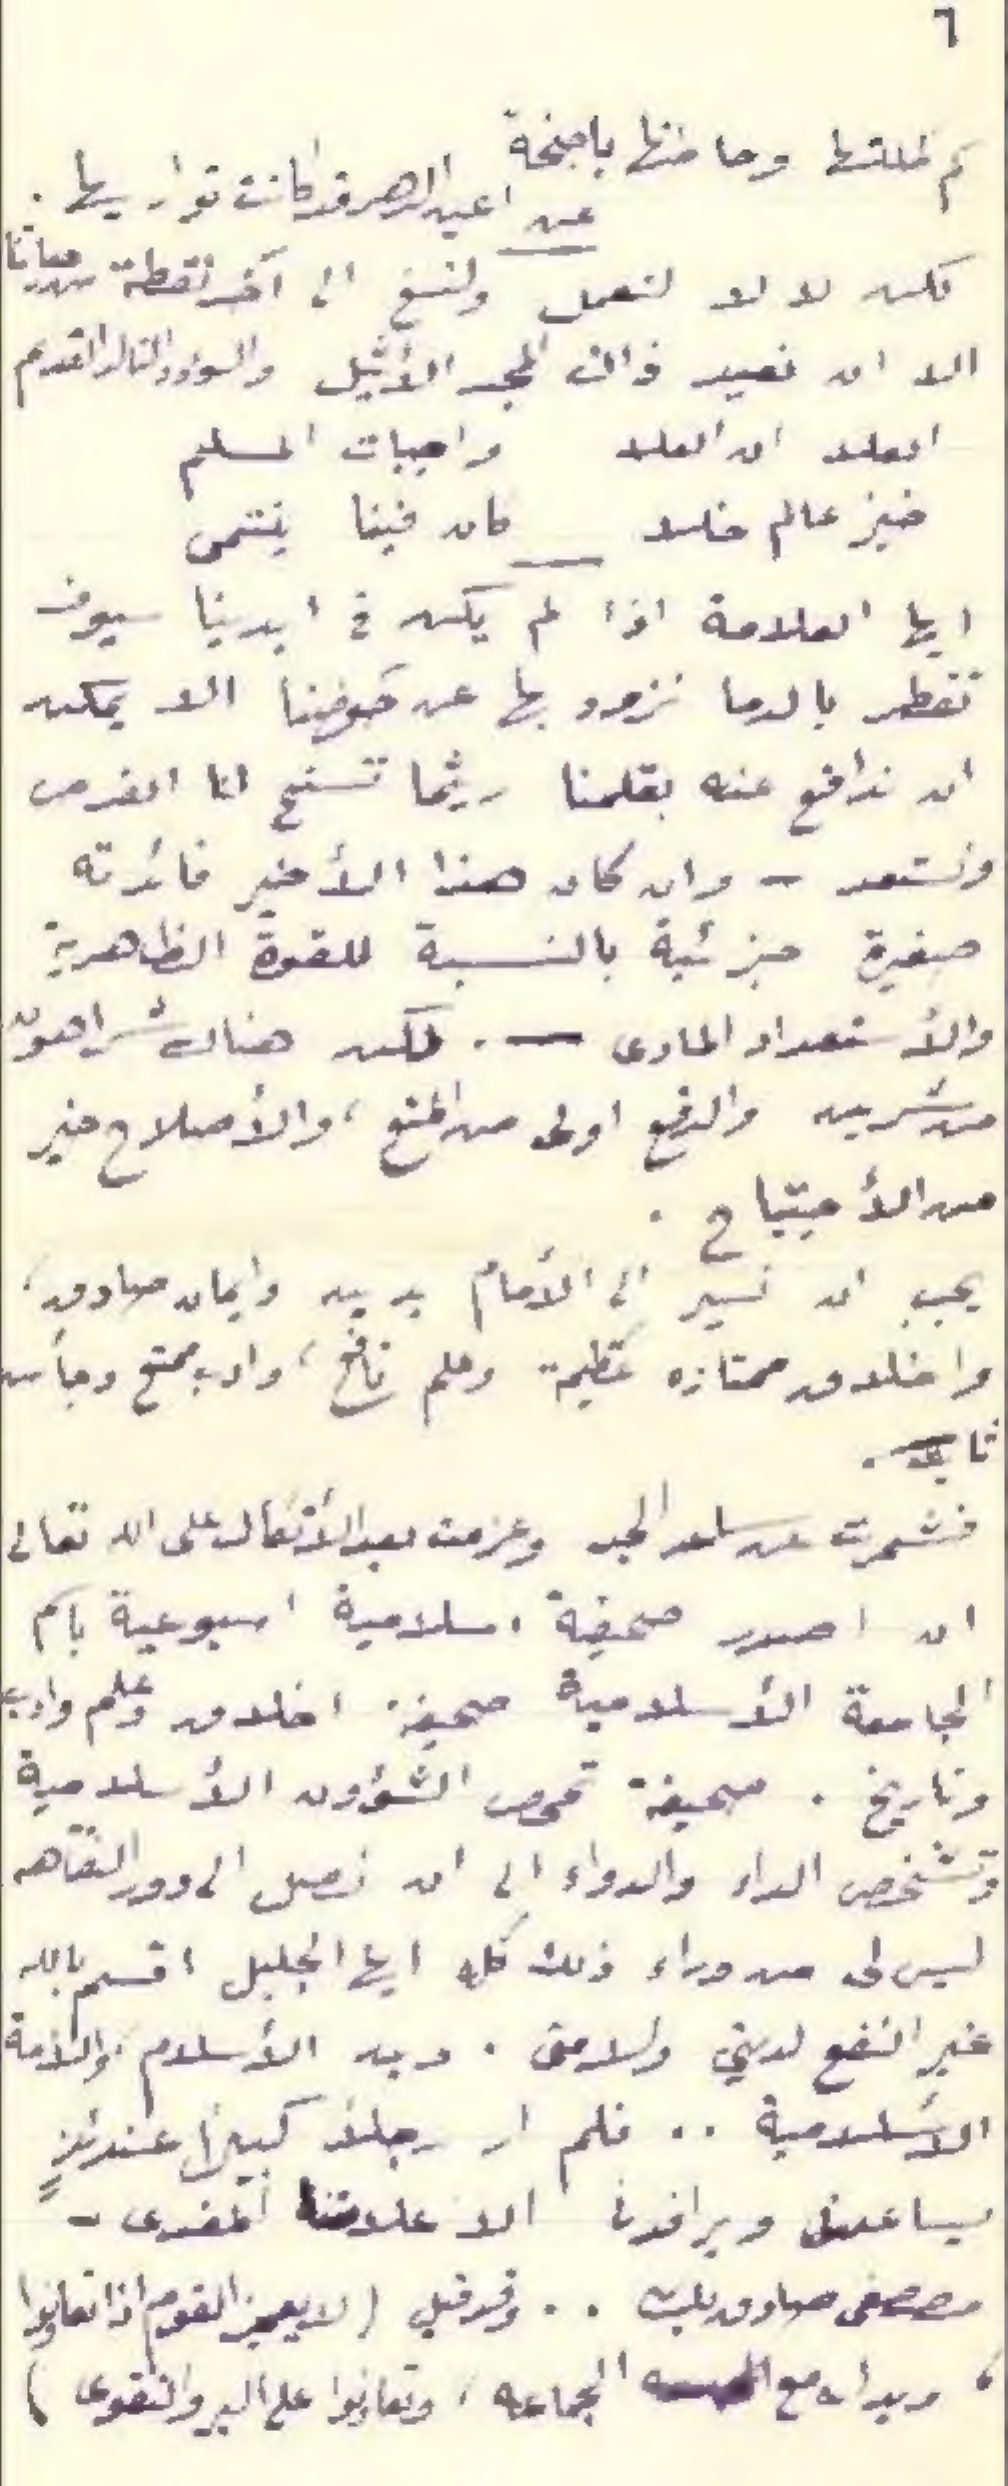 ٦
كم ظللتها وحاطتها باجنحة
عن اعين الدهر قد كانت تواريها .
لكن لا لا لنعمل ولنسع الى آخر نقطة من دمائنا
الا ان نعيد ذالك المجد الأثيل والسؤدد التالد القديم
العلا ان العلا واجبات المسلم
خير عالم خلا كان فينا ينتمى
ايها العلامة اذا لم يكن في ايدينا سيوف
تقطر بالدما نذود بها عن حوضنا الا يمكن
ان ندافع عنه بقلمنا ريثما تسنح لنا الفرص
ونستعد – وان كان هذا الأخير فائدته
صغيرة جزئية بالنسبة للقوة الظاهرية
والأستعداد المادى – . لكن هناك شر اهون
من شرين والدفع اولى من المنع ، والأصلاح خير
من الأجتياح .
يجب ان نسير الى الأمام بدين وايمان صادق ،
واخلاق ممتازه عظيمة وعلم نافع ، وادب ممتع وجأش
ثابت .
فشمرت عن ساعد الجد وعزمت بعد الأتكال على الله تعالى
ان اصدر صحيفة اسلامية اسبوعية باسم
الجامعة الأسلامية صحيفة اخلاق وعلم وادب
وتاريخ . صحيفة تمحص الشؤون الأسلامية
وتشخص الداء والدواء الى ان نصل الى دور النقاهه
ليس لى من وراء ذلك كله ايها الجليل اقسم بالله
غير النفع لدينى ولامتى . دين الأسلام والأمة
الأسلامية .. فلم ار رجلاً كبيراً عندئذٍ
يساعدنى ويرافدنى الا علامتنا المفدى –
مصطفى صادق بك .. وقد قيل (لا يعجز القوم اذا تعاونوا
، ويد الله مع الجماعه ، وتعاونوا على البر والتقوى )